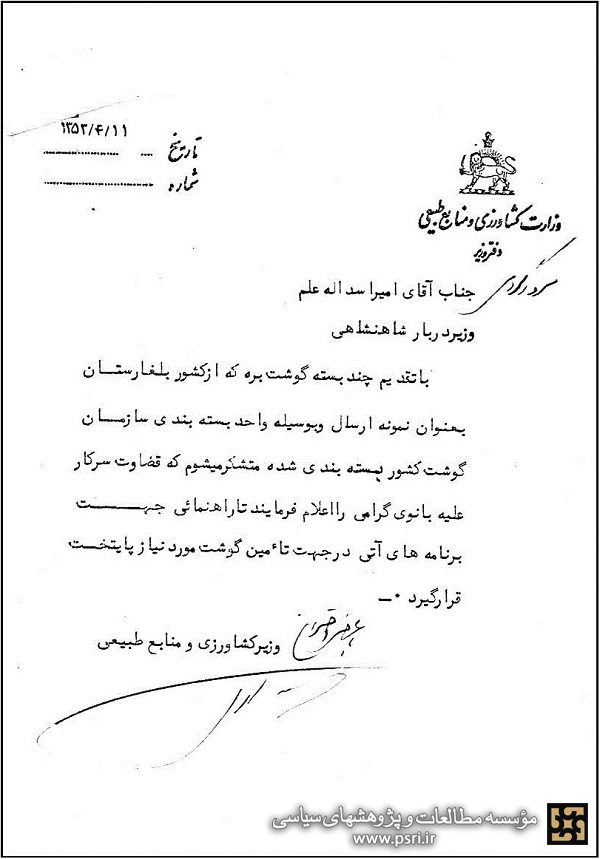 ۱۳۵۳/۴/۱۱
تاریخ
شماره
وزارت کشاورزی و منابع طبیعی
دفتر وزیر
جناب آقای امیراسداله علم
وزیردربار شاهنشاهی
باتقدیم چند بسته گوشت بره که ازکشور بلغارستان
بعنوان نمونه ارسال وبوسیله واحد بسته بندی سازمان
گوشت کشور بسته بندی شده متشکرمیشوم که قضاوت سرکار
علیه بانوی گرامی را اعلام فرمایند تاراهنمائی جهت
برنامه های آتی درجهت تاٴمین گوشت مورد نیاز پایتخت
قرارگیرد ۰ـ
وزیرکشاورزی و منابع طبیعی
مؤسسه مطالعات و پژوهشهای سیاسی
www.psri.ir